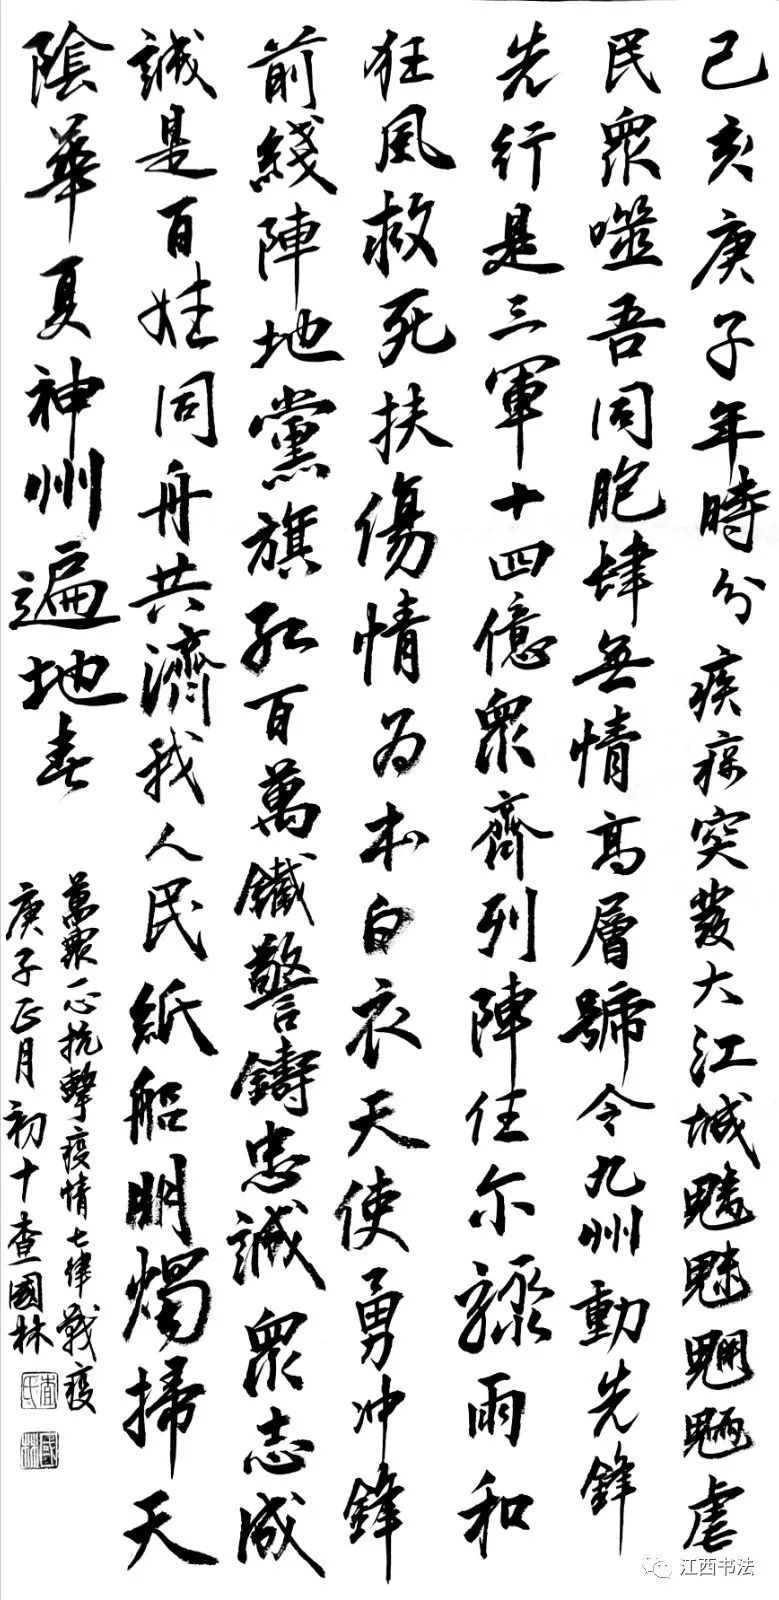 己亥庚子年時分疾突發大江城魑魅魍魎虐
民眾噬吾同胞肆無情高層號令九州動先鋒
先行是三軍十四億眾齊列陣任尔驟雨和
狂風救死扶傷情为本白衣天使勇冲鋒
前綫陣地黨旗紅百萬鐵警鑄忠誠眾志成
誠是百姓同舟共濟我人民紙船明燭掃天
陰華夏神州遍地春
萬眾一心抗擊疫情七律戰疫
庚子正月初十查國林
江西书法